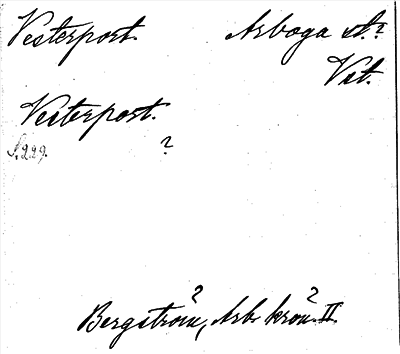 Vesterport. Arboga st.?
Vst.
Vesterport.
?
S. 229.
Bergström, Arb. krön. II.